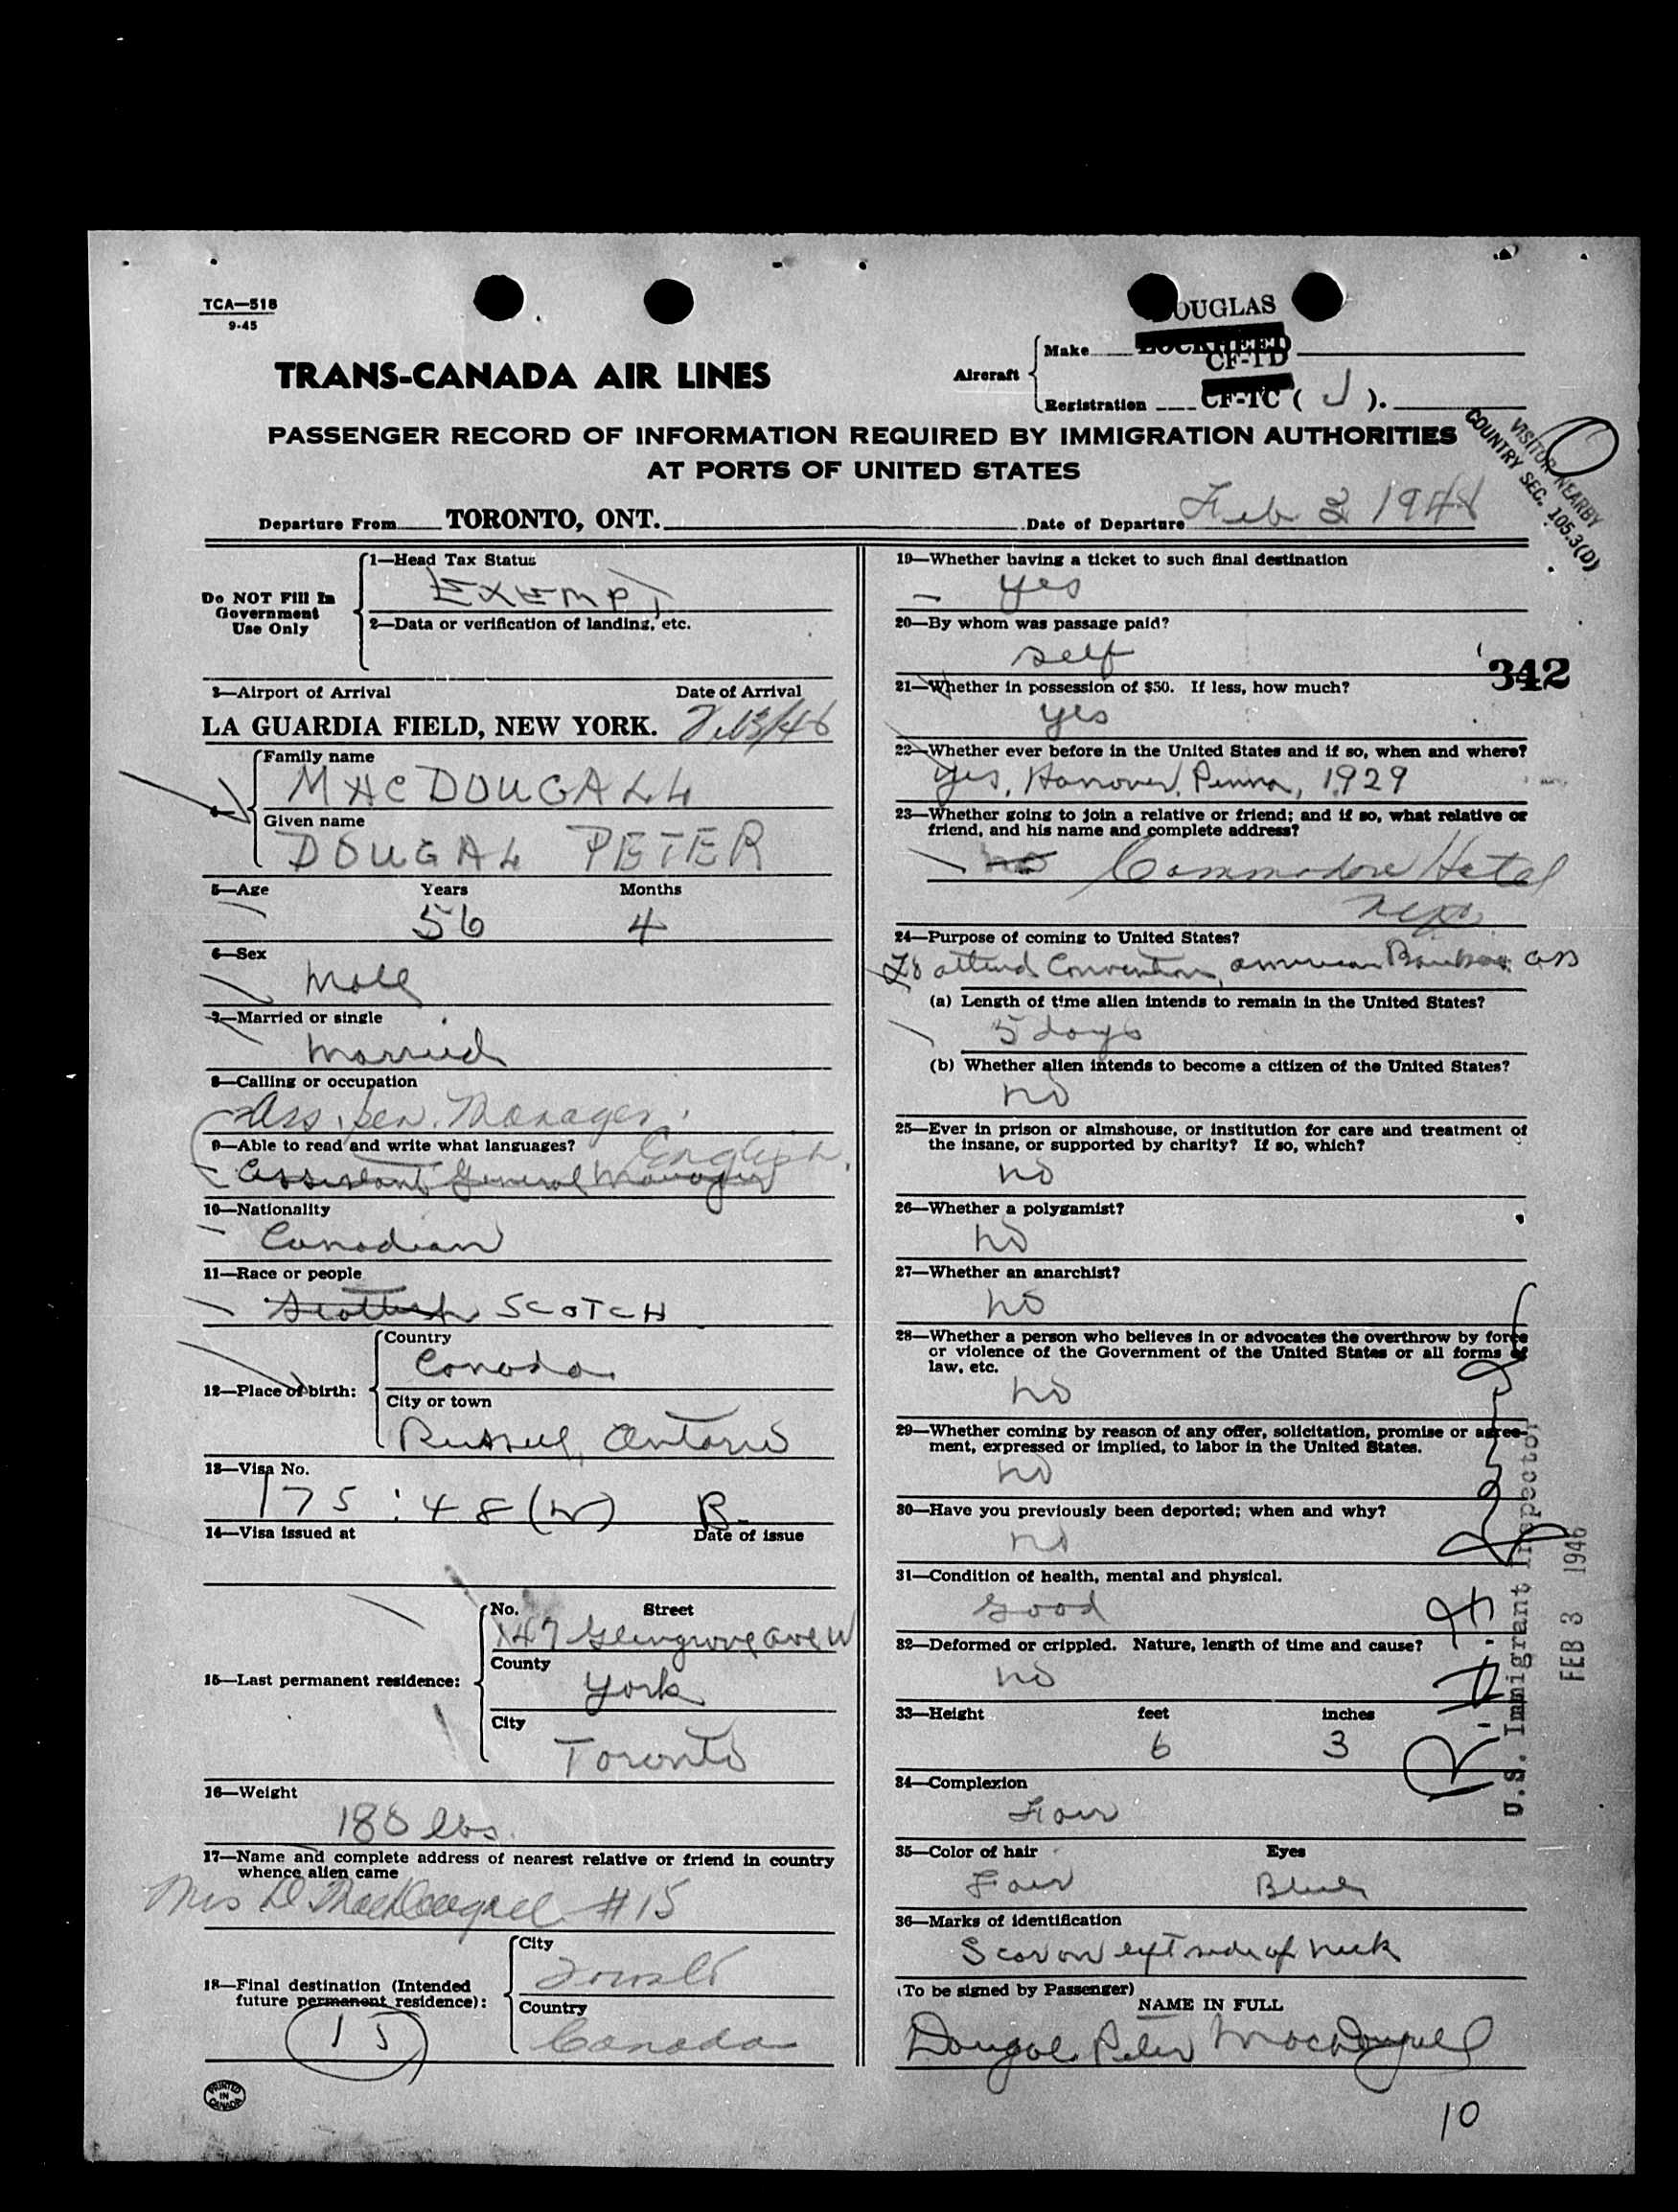 TCA—518
9-45
TRANS-CANADA AIR LINES
Aircraft
Make
OUGLAS
LOCKHEED
CF-TD
Registration CF-TC ( J ).
PASSENGER RECORD OF INFORMATION REQUIRED BY IMMIGRATION AUTHORITIES
AT PORTS OF UNITED STATES
VISITOR NEARBY
COUNTRY SEC. 105.3(D)
Departure From TORONTO, ONT. Date of Departure Feb 3 194
Do NOT Fill In
Government
Use Only
1—Head Tax Status
EXEMPT
2—Data or verification of landing, etc.
3—Airport of Arrival Date of Arrival
LA GUARDIA FIELD, NEW YORK.
Family name
MACDOUGALL
Given name
DOUGAL PETER
5—Age Years Months
56 4
6—Sex
Male
7—Married or single
Married
8—Calling or occupation
Ass. Gen. Manager.
9—Able to read and write what languages?
English.
Assistant General Manager
10—Nationality
Canadian
11—Race or people
Scottish SCOTCH
12—Place of birth:
Country
Canada
City or town
Russell, Ontario
13—Visa No.
175:48(W) B.
14—Visa issued at Date of issue
15—Last permanent residence:
No. Street
147 Glengrove Ave W
County
York
City
Toronto
16—Weight
180 lbs.
17—Name and complete address of nearest relative or friend in country
whence alien came
Mrs D MacDougall #15
18—Final destination (Intended
future permanent residence):
15
City
Toronto
Country
Canada
PRINTED
IN
CANADA
19—Whether having a ticket to such final destination
yes
20—By whom was passage paid?
self
342
21—Whether in possession of $50. If less, how much?
yes
22—Whether ever before in the United States and if so, when and where?
yes, Hanover, Penna, 1929
23—Whether going to join a relative or friend; and if so, what relative or
friend, and his name and complete address?
no Commodore Hotel
24—Purpose of coming to United States?
To attend Convention, American Bankers ass
(a) Length of time alien intends to remain in the United States?
5 days
(b) Whether alien intends to become a citizen of the United States?
no
25—Ever in prison or almshouse, or institution for care and treatment of
the insane, or supported by charity? If so, which?
no
26—Whether a polygamist?
no
27—Whether an anarchist?
no
28—Whether a person who believes in or advocates the overthrow by force
or violence of the Government of the United States or all forms of
law, etc.
no
29—Whether coming by reason of any offer, solicitation, promise or agree-
ment, expressed or implied, to labor in the United States.
no
30—Have you previously been deported; when and why?
no
31—Condition of health, mental and physical.
Good
32—Deformed or crippled. Nature, length of time and cause?
no
33—Height feet inches
6 3
34—Complexion
Fair
35—Color of hair Eyes
Fair Blue
36—Marks of identification
Scar on left side of neck
(To be signed by Passenger)
NAME IN FULL
Dougal Peter MacDougall
U.S. Immigrant Inspector
FEB 3 1946
10